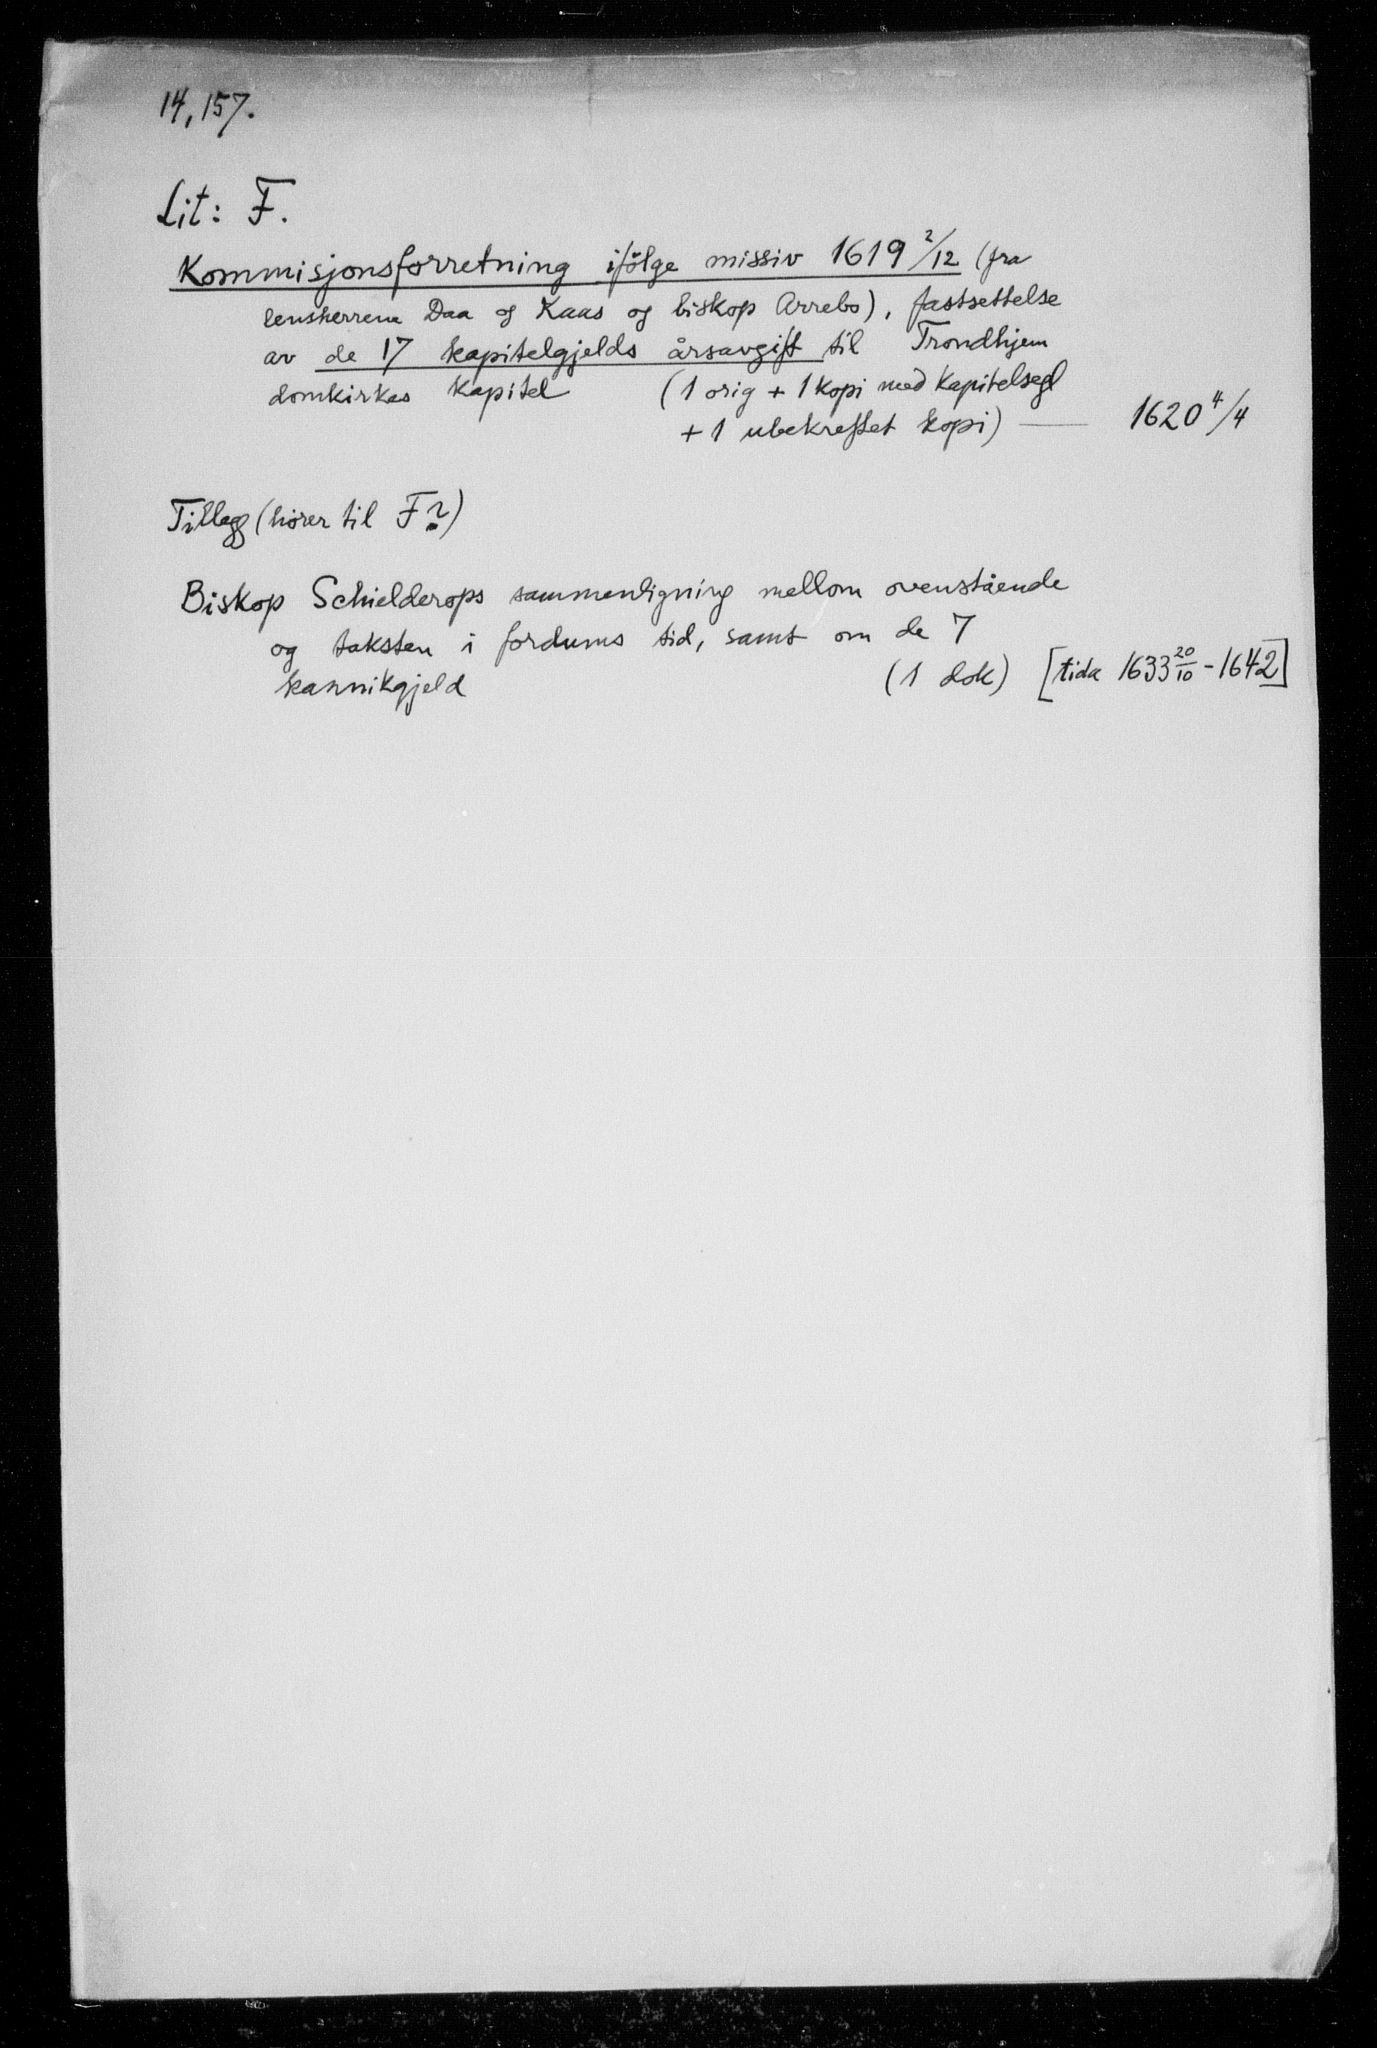 14,157.
Lit: F.
Kommisjonsforretning ifølge missiv 1619 2/12 (fra
lensherrene Daa og Kaas og biskop Arrebo), fastsettelse
av de 17 kapitelgjelds årsavgift til Trondhjem
domkirkes kapitel (1 orig + 1 kopi med kapitelsegl
+ 1 ubekreftet kopi) — 1620 4/4
Tillegg (hører til F?)
Biskop Schielderops sammenligning mellom ovenstående
og taksten i fordums tid, samt om de 7
kannikgjeld (1 dok) [tida 1633 20/10 - 1642]